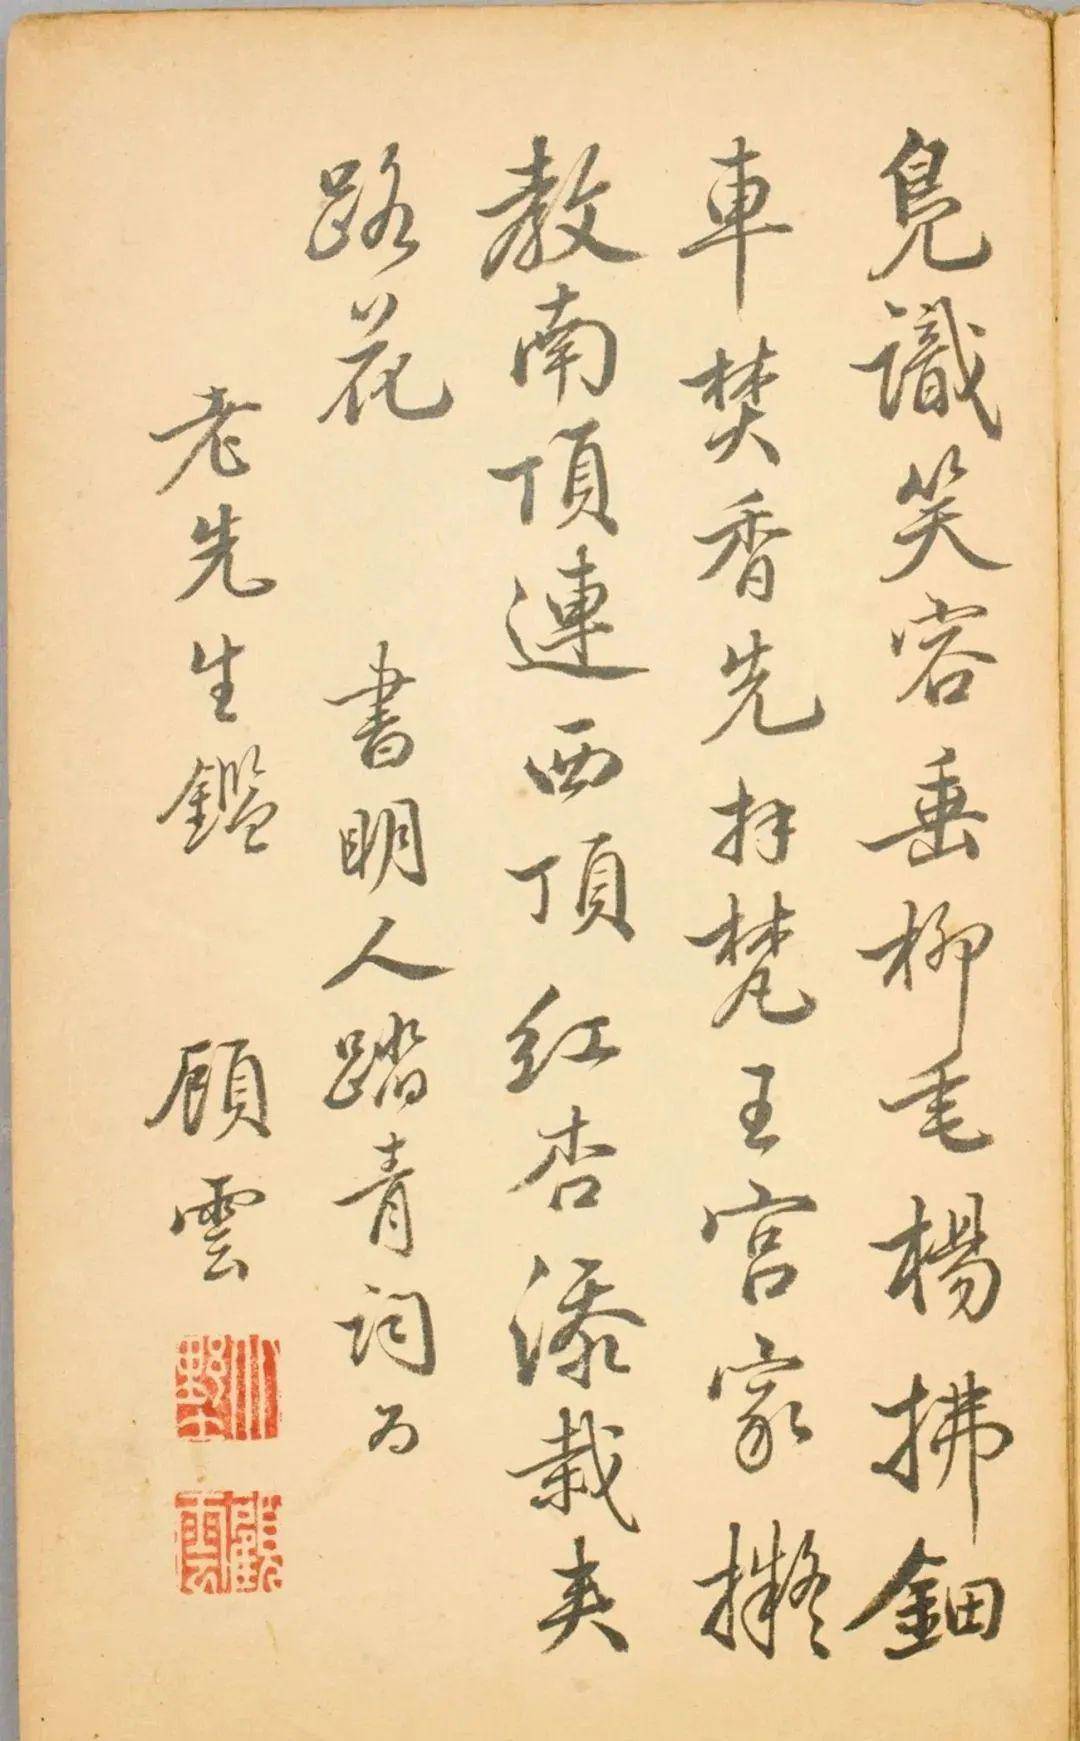 皃識笑容垂柳毛楊拂鈿
車焚香先拜梵王宮家擬
教南頂連西頂紅杏添栽夾
路花
書明人踏青詞為
老先生鑑
顧雲
顧雲